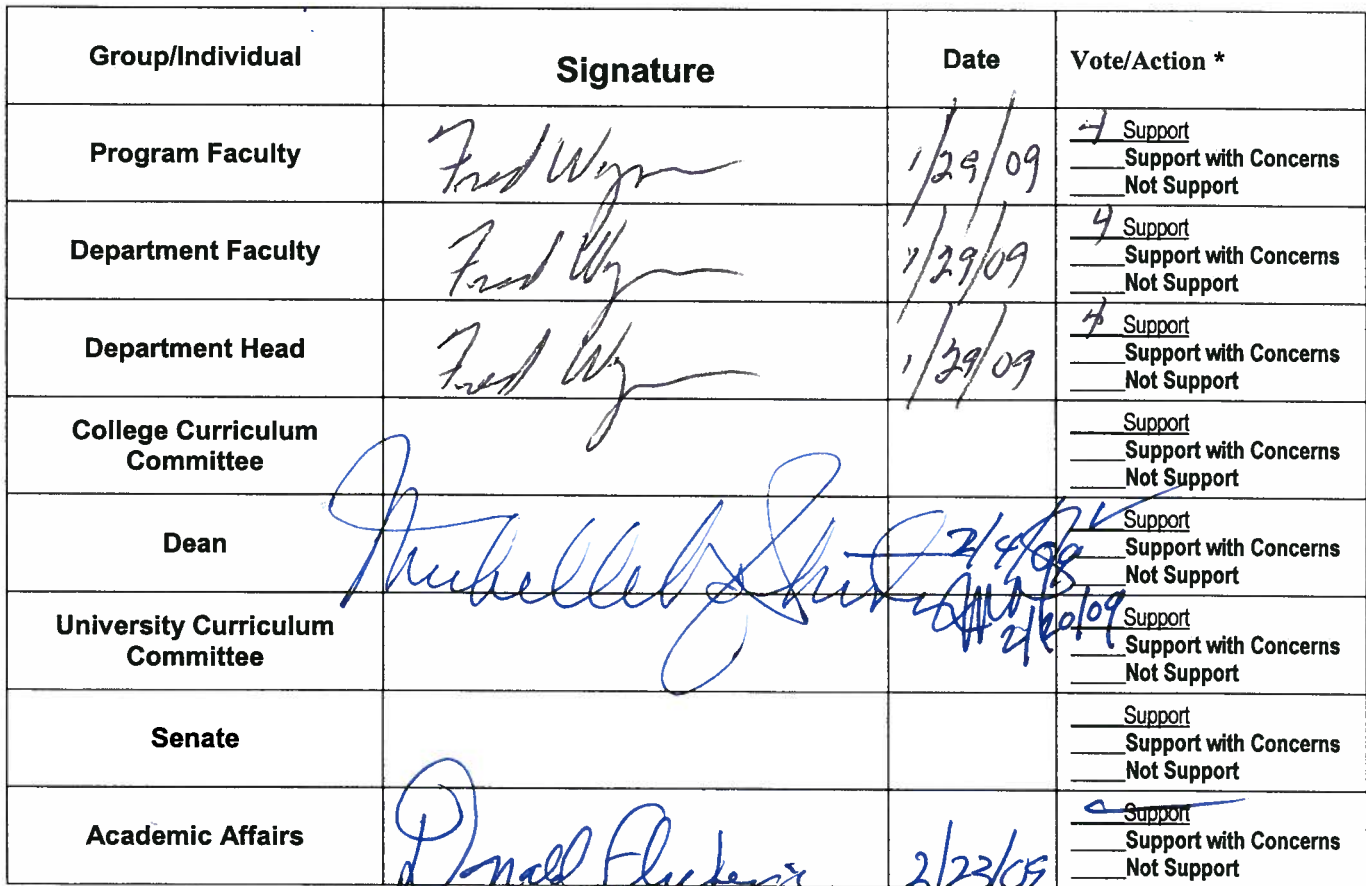 Group/Individual Signature Date Vote/Action *
Program Faculty Fred Wynn 1/29/09 4 Support
____Support with Concerns
____Not Support
Department Faculty Fred Wy 1/29/09 4 Support
____Support with Concerns
____Not Support
Department Head Fred Wy 1/29/09 4 Support
____Support with Concerns
____Not Support
College Curriculum
Committee
____Support
____Support with Concerns
____Not Support
Dean Michelle 2/4/09 ✓ Support
____Support with Concerns
____Not Support
University Curriculum
Committee
2/20/09
____Support
____Support with Concerns
____Not Support
Senate
____Support
____Support with Concerns
____Not Support
Academic Affairs Donald 2/23/09 Support
____Support with Concerns
____Not Support